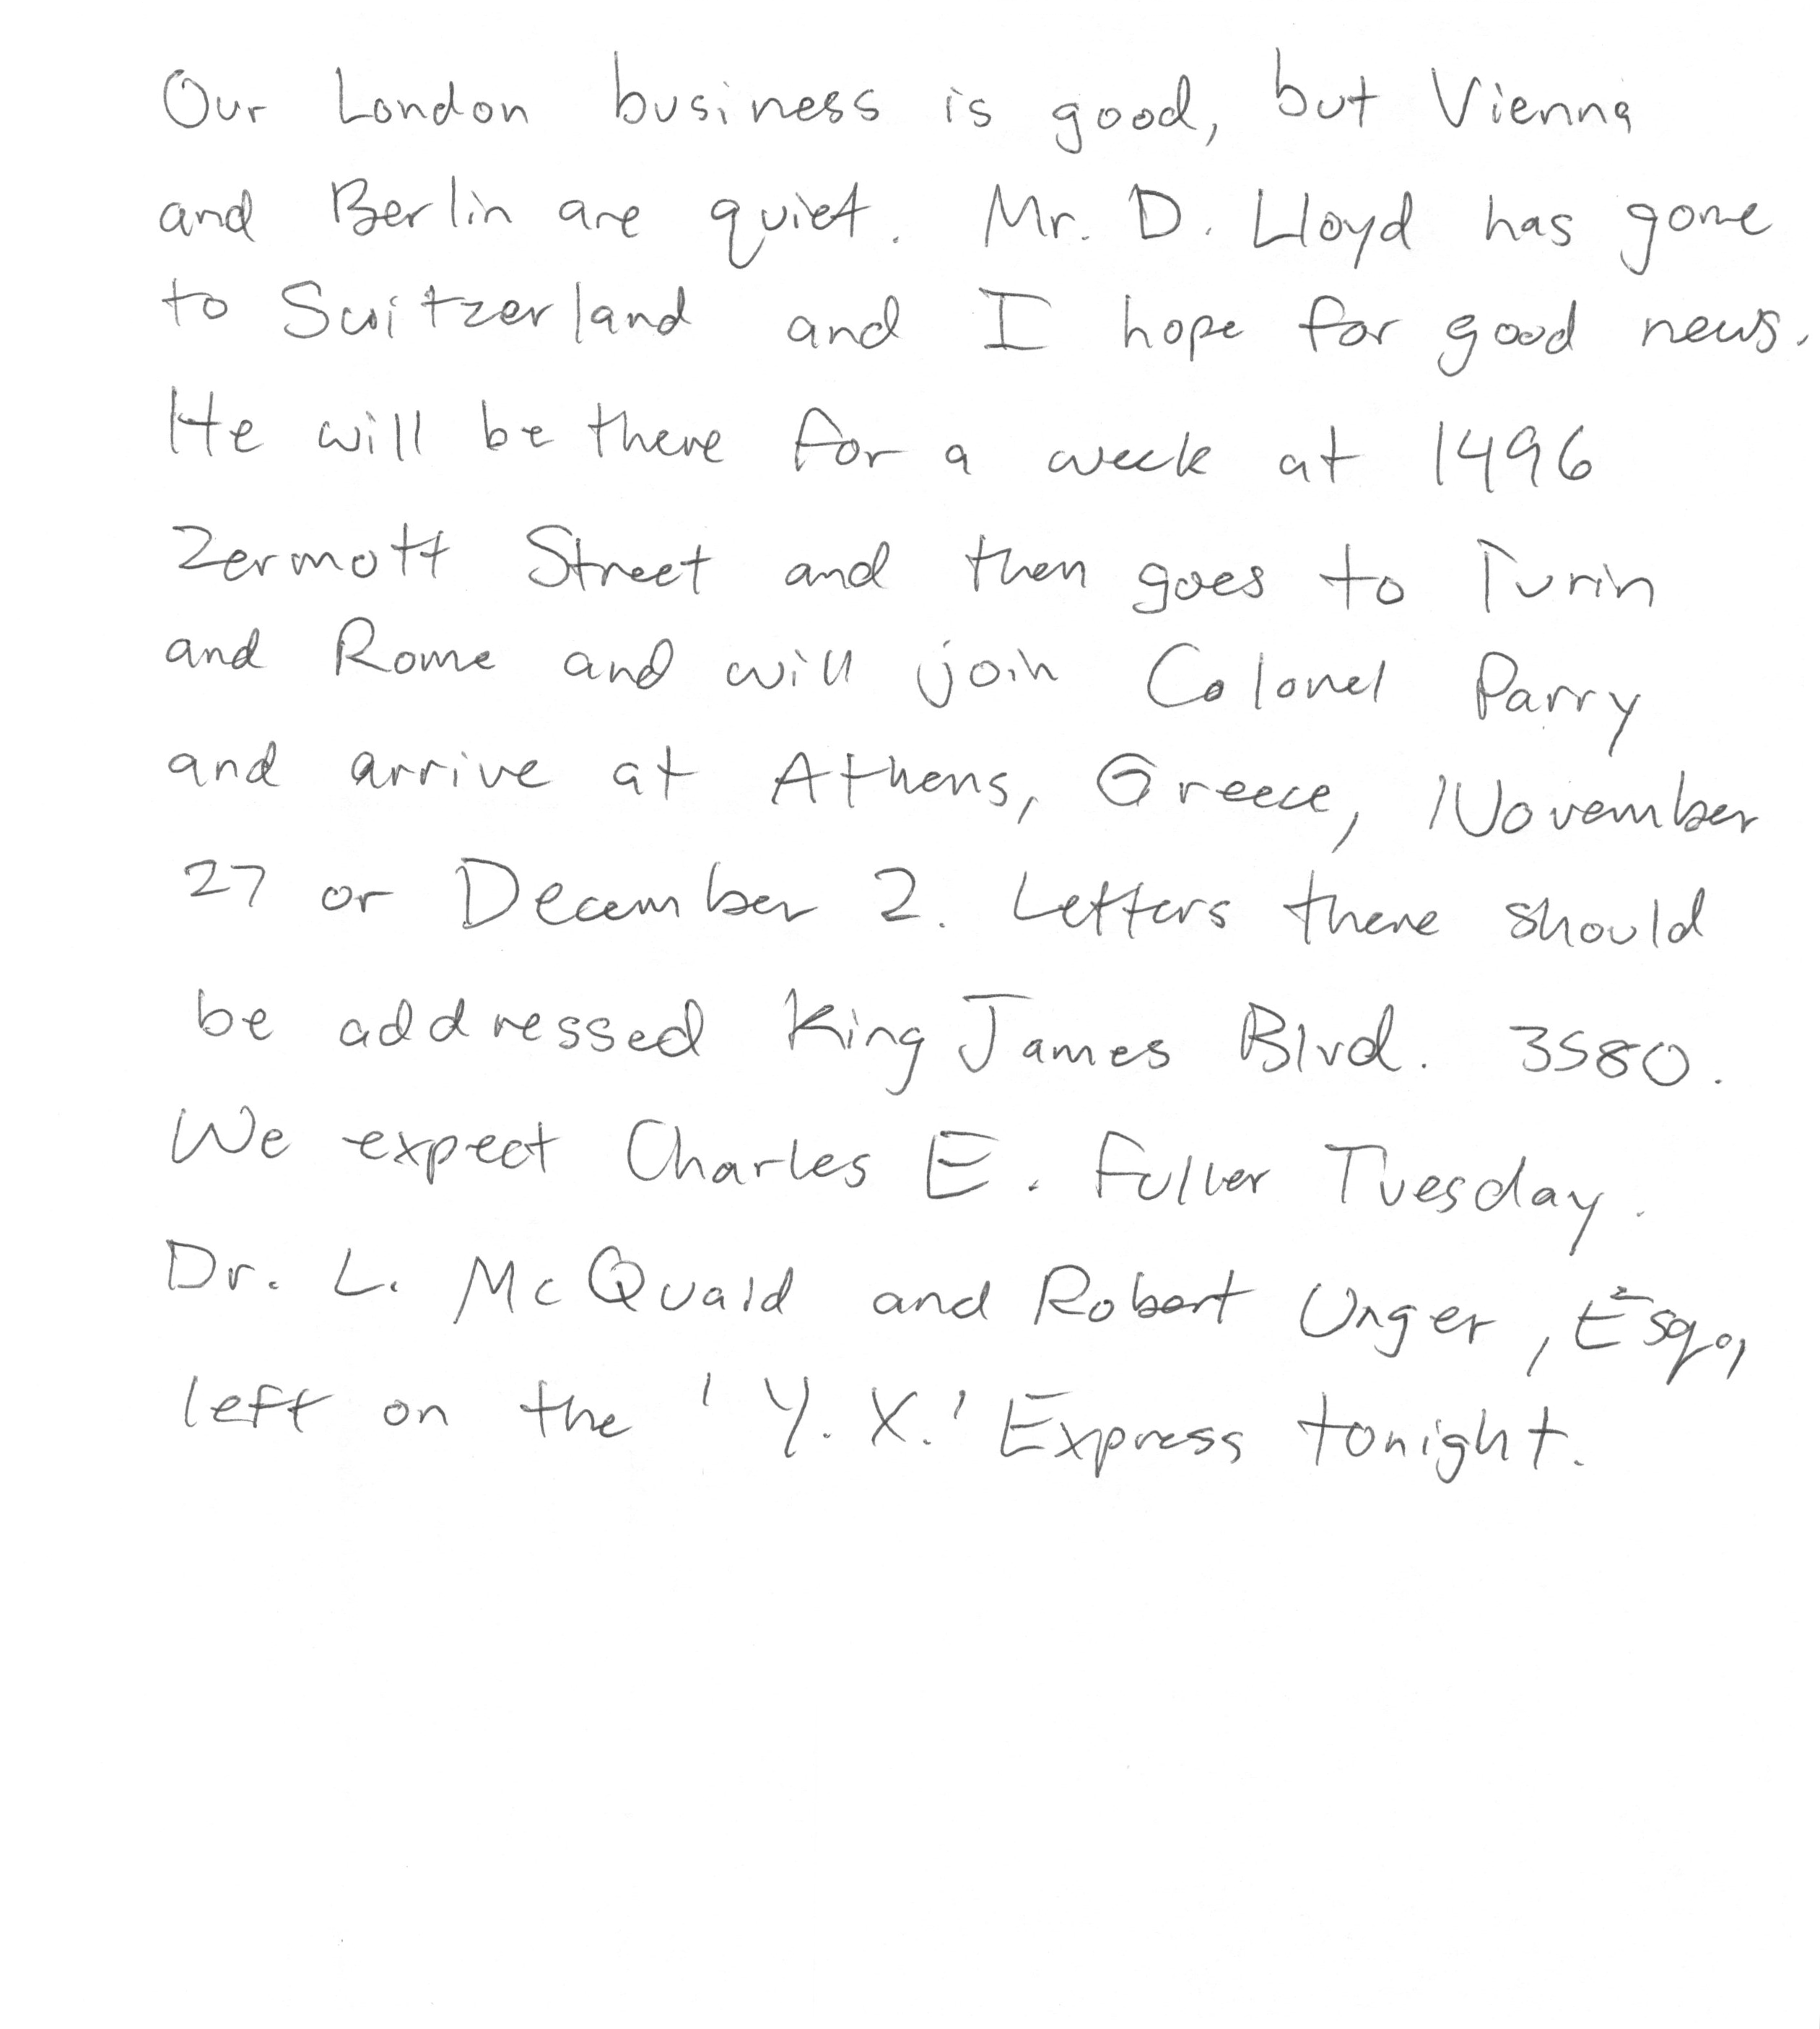 Our London business is good, but Vienna
and Berlin are quiet. Mr. D. Lloyd has gone
to Switzerland and I hope for good news.
He will be there for a week at 1496
Zermott Street and then goes to Turin
and Rome and will join Colonel Parry
and arrive at Athens, Greece, November
27 or December 2. Letters there should
be addressed King James Blvd. 3580.
We expect Charles E. Fuller Tuesday.
Dr. L. McQuaid and Robert Unger, Esq.,
left on the 'Y. X.' Express tonight.